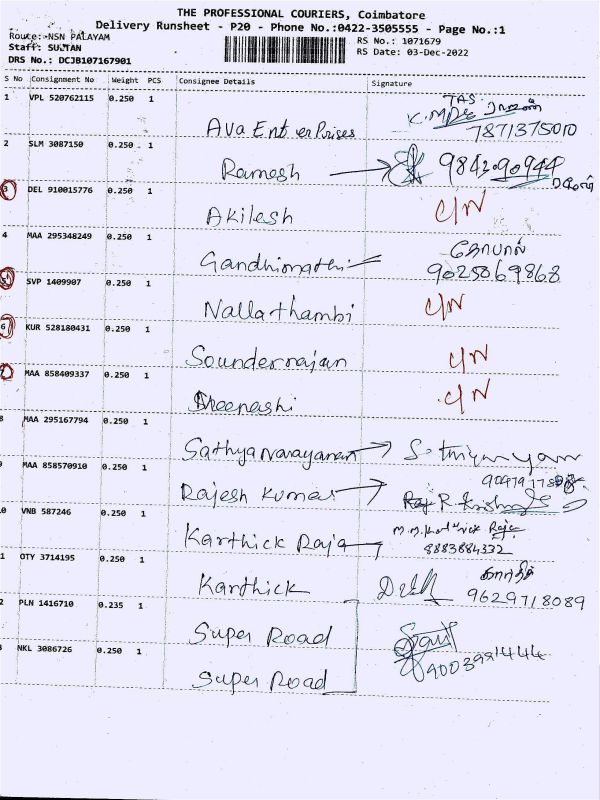 THE PROFESSIONAL COURIERS, Coimbatore
Delivery Runsheet - P20 - Phone No.:0422-3505555 - Page No.:1
Route: NSN PALAYAM
RS No.: 1071679
Staff: SULTAN
RS Date: 03-Dec-2022
DRS No.: DCJB107167901
S No Consignment No Weight PCS Consignee Details Signature
1 VPL 520762115 0.250 1 Ava Enterprises 7871375010
2 SLM 3087150 0.250 1 Ramesh 9843090944
3 DEL 910015776 0.250 1 Akilesh C/N
4 MAA 295348249 0.250 1 Gandhimathi கோபால் 9025069868
5 SVP 1409907 0.250 1 Nallathambi C/N
6 KUR 528180431 0.250 1 Sounderrajan C/N
MAA 858409337 0.250 1 C/N
8 MAA 295167794 0.250 1 Sathyanarayanan
9 MAA 858570910 0.250 1 Rajesh Kumar
0 VNB 587246 0.250 1 Karthick Raja 8883884332
1 OTY 3714195 0.250 1 Karthick 9629718089
2 PLN 1416710 0.235 1 Super Road
3 NKL 3086726 0.250 1 Super Road